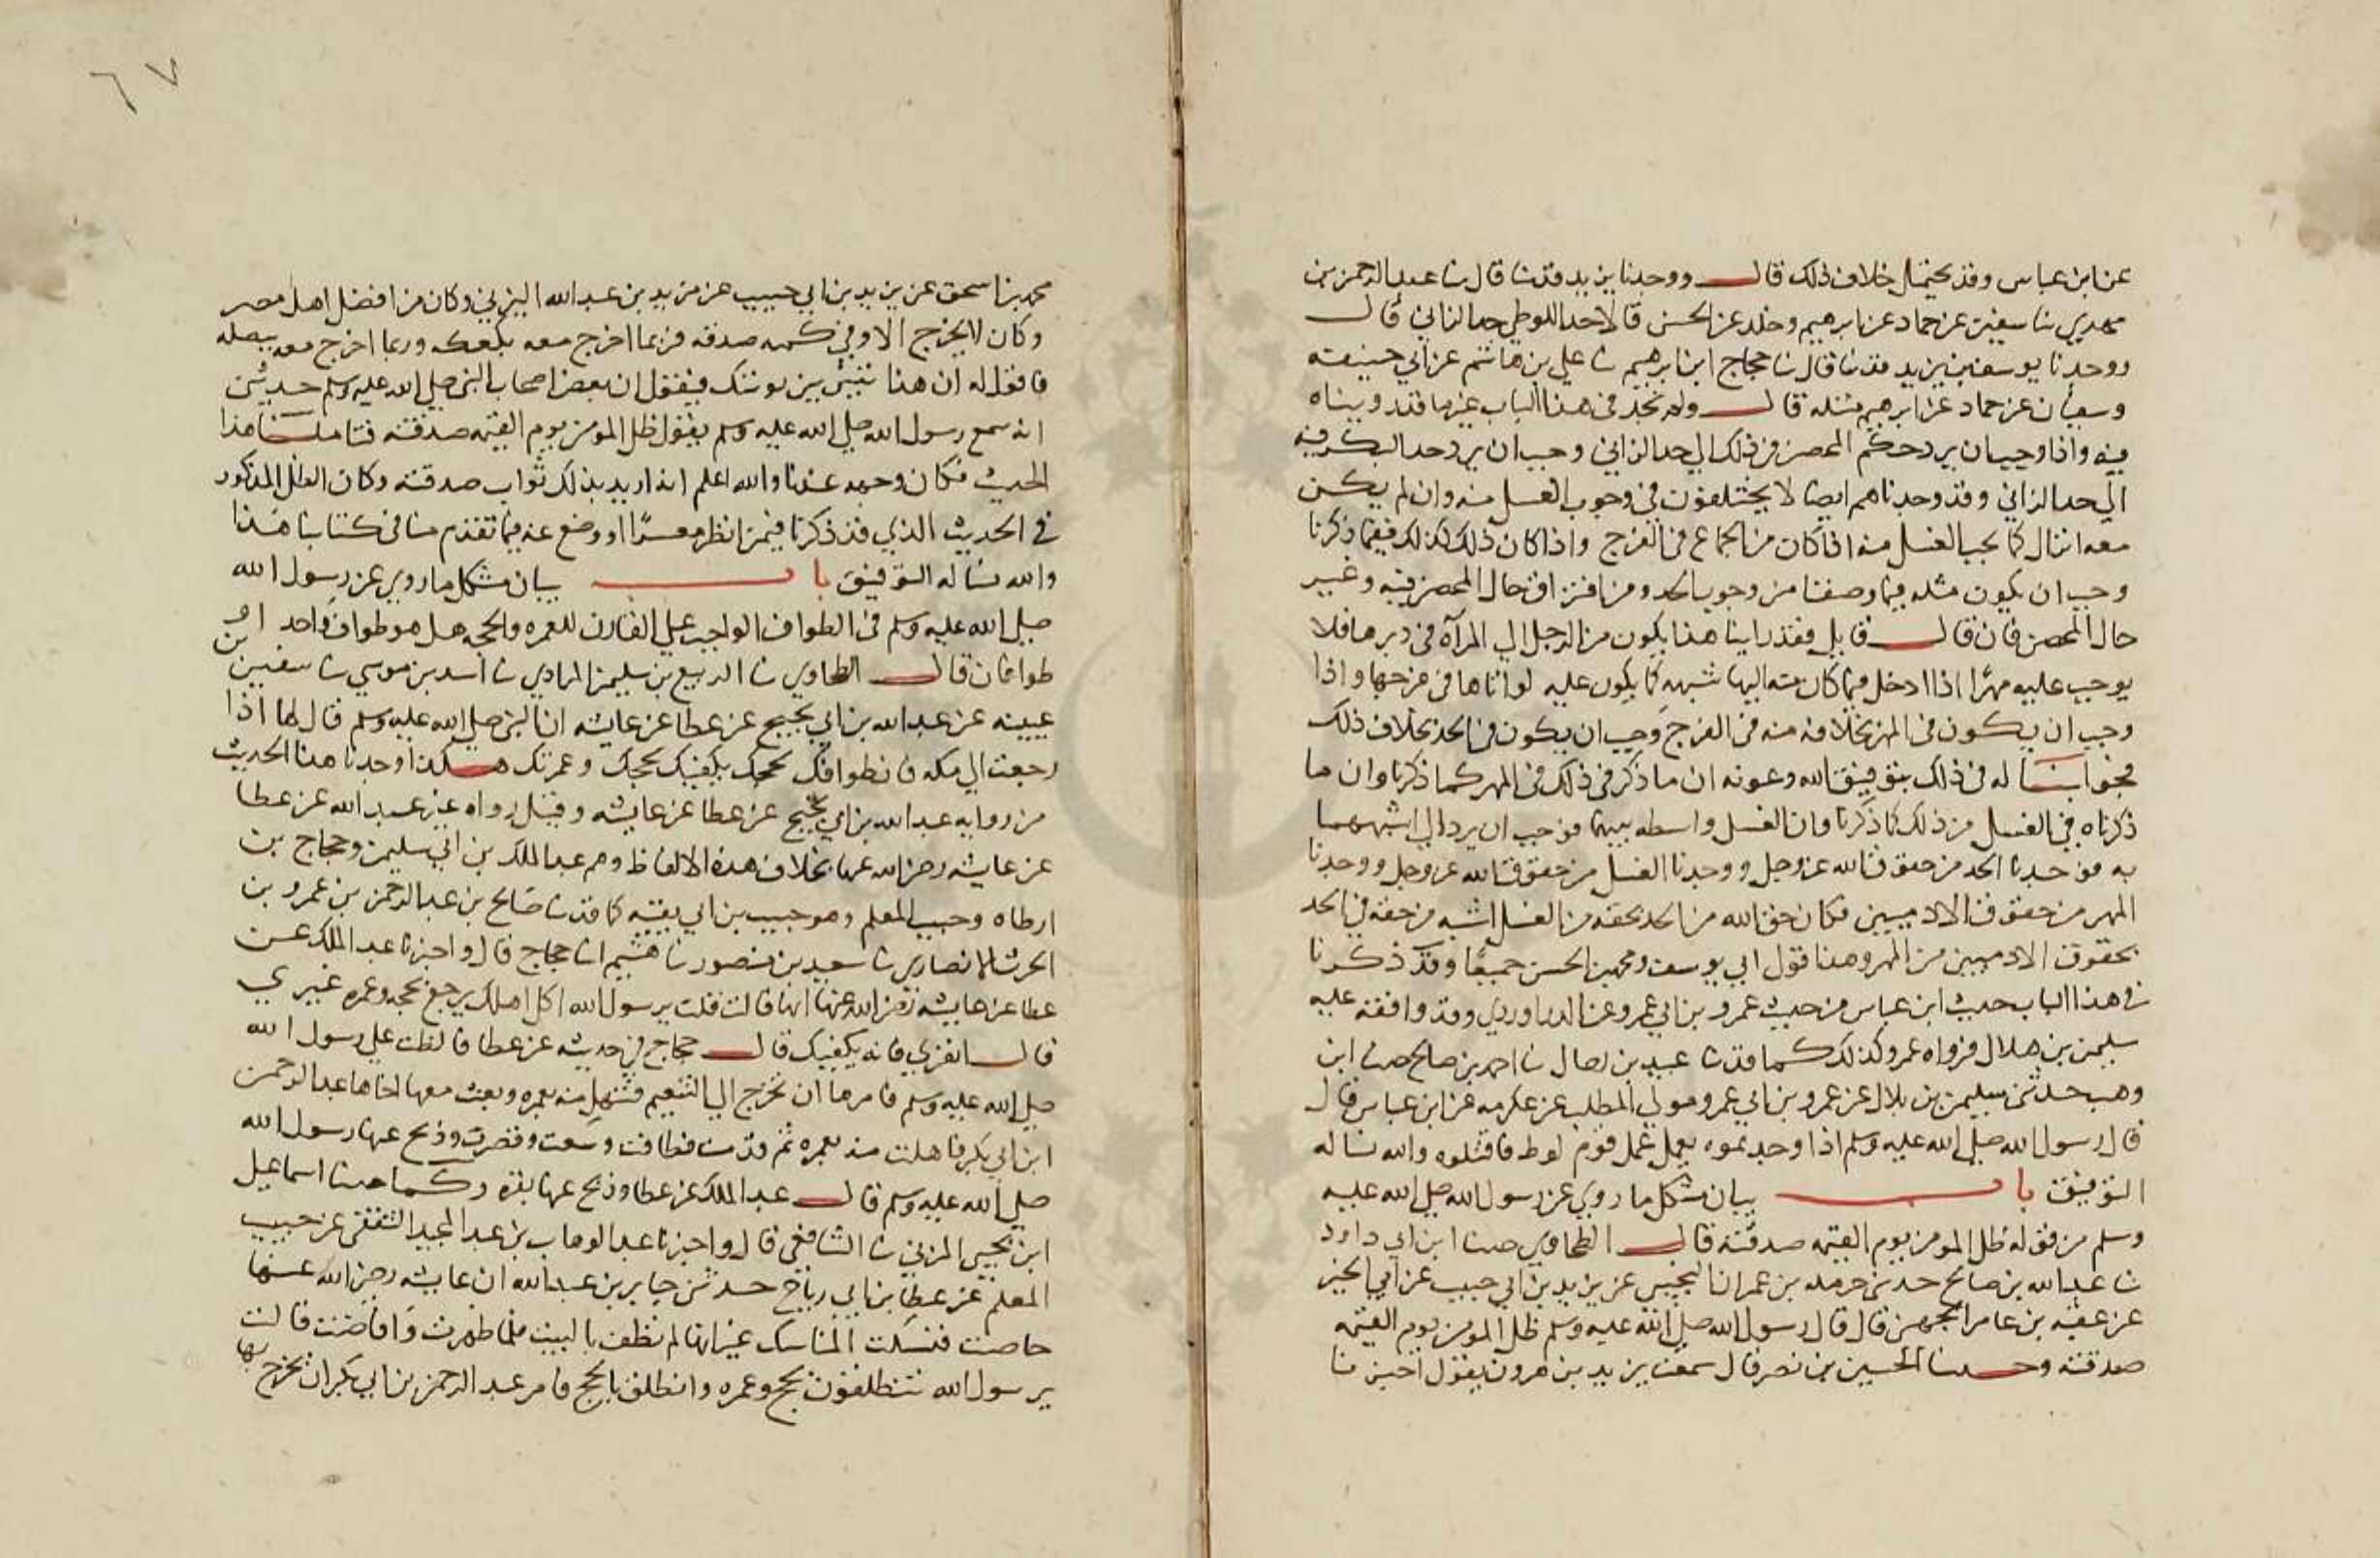 عن ابن عباس وقد يحتمل خلاف ذلك قال ووجدنا يزيد قد ثنا قال ثنا عبد الرحمن بن
مهدي ثنا سفين عن حماد عن ابرهيم وخلد عن الحسن قالا حد اللوطي حد الزاني قال
ووجدنا يوسف بن يزيد قد ثنا قال ثنا حجاج ابن ابرهيم ثنا علي بن هاشم عن ابي حنيفة
وسفيان عن حماد عن ابرهيم مثله قال ولم نجد في هذا الباب غير ما قد رويناه
فيه واذا وجب ان يرد حكم المحصن في ذلك الي حد الزاني وجب ان يرد حد البكر فيه
الي حد الزاني وقد وجدناهم ايضا لا يختلفون في وجوب الغسل منه وان لم يكن
معه انزال كما يجب الغسل منه اذا كان من الجماع في الفرج واذا كان ذلك كذلك فيما ذكرنا
وجب ان يكون مثله فيما وصفنا من وجوب الحد ومن افتراق حال المحصن فيه وغير
حال المحصن فان قال قايل فقد راينا هذا يكون من الرجل الي المرآة في دبرها فلا
يوجب عليه مهرًا اذا ادخل فيما كان منه اليها شبهه كما يكون عليه لو اتاها في فرجها واذا
وجب ان يكون في المهر بخلافه منه في الفرج وجب ان يكون في الحد بخلاف ذلك
فجوابنا له في ذلك بتوفيق الله وعونه ان ما ذكر في ذلك في المهر كما ذكرنا وان ما
ذكرناه في الغسل من ذلك كما ذكرنا وان الغسل واسطه بينهما فوجب ان يرد الي اشبههما
به فوجدنا الحد من حقوق الله عز وجل ووجدنا الغسل من حقوق الله عز وجل ووجدنا
المهر من حقوق الادميين فكان حق الله من الحد بحقه من الغسل اشبه من حقه في الحد
بحقوق الادميين من المهر وهذا قول ابي يوسف ومحمد بن الحسن جميعًا وقد ذكرنا
في هذا الباب حديث ابن عباس من حديث عمرو بن ابي عمرو عن الدراوردي وقد وافقه عليه
سليمن بن هلال فرواه عمرو كذلك كما قد ثنا عبيد بن رحال ثنا احمد بن صالح حدثنا ابن
وهب حدثني سليمن بن بلال عن عمرو بن ابي عمرو مولي المطلب عن عكرمه عن ابن عباس قال
قال رسول الله صلي الله عليه وسلم اذا وجدتموه يعمل عمل قوم لوط فاقتلوه والله نساله
التوفيق باب بيان مشكل ما روي عن رسول الله صلي الله عليه
وسلم من قوله ظل المومن يوم القيمه صدقته قال الطحاوي حدثنا ابن ابي داود
ثنا عبد الله بن صالح حدثني حرمله بن عمران التجيبي عن يزيد بن ابي حبيب عن ابي الخير
عن عقبه بن عامر الجهني قال قال رسول الله صلي الله عليه وسلم ظل المومن يوم القيمه
صدقته وحدثنا الحسين بن نصر قال سمعت يزيد بن هرون يقول اخبرنا
٦٧
محمد بن اسحق عن يزيد بن ابي حبيب عن مرثد بن عبد الله اليزني وكان من افضل اهل مصر
وكان لا يخرج الا وفي كمه صدقه فربما اخرج معه بكعك وربما اخرج معه ببصله
فاقول له ان هذا ينتن ثوبك فيقول ان بعض اصحاب النبي صلي الله عليه وسلم حدثني
انه سمع رسول الله صلي الله عليه وسلم يقول ظل المومن يوم القيمه صدقته فتاملنا هذا
الحديث فكان وجهه عندنا والله اعلم انه اريد بذلك ثواب صدقته وكان الظل المذكور
في الحديث الذي قد ذكرنا فيمن انظر معسرًا او وضع عنه فيما تقدم منا في كتابنا هذا
والله نساله التوفيق باب بيان مشكل ما روي عن رسول الله
صلي الله عليه وسلم في الطواف الواجب علي القارن للعمره والحجه هل هو طواف واحد او
طوافان قال الطحاوي ثنا الربيع بن سليمن المرادي ثنا اسد بن موسي ثنا سفين بن
عيينه عن عبد الله بن ابي نجيح عن عطا عن عايشه ان النبي صلي الله عليه وسلم قال لها اذا
رجعت الي مكه فان طوافك لحجك يكفيك لحجك وعمرتك هكذا وجدنا هذا الحديث
من روايه عبد الله بن ابي نجيح عن عطا عن عايشه وقد رواه غير عبد الله عن عطا
عن عايشه رضي الله عنها بخلاف هذه الالفاظ وهم عبد الملك بن ابي سليمن وحجاج بن
ارطاه وحبيب المعلم وهو حبيب بن ابي بقيه كما قد ثنا صالح بن عبد الرحمن بن عمرو بن
الحرث الانصاري ثنا سعيد بن منصور ثنا هشيم انا حجاج قال واخبرنا عبد الملك عن
عطا عن عايشه رضي الله عنها انها قالت قلت يرسول الله اكل اهلك يرجع بحجه وعمره غيري
قال انفري فانه يكفيك قال حجاج في حديثه عن عطا فالظت علي رسول الله
صلي الله عليه وسلم فامرها ان تخرج الي التنعيم فتهل منه بعمره وبعث معها اخاها عبد الرحمن
ابن ابي بكر فاهلت منه بعمره ثم قدمت فطافت وسعت وقصرت وذبح عنها رسول الله
صلي الله عليه وسلم قال عبد الملك عن عطا وذبح عنها بقره وكما حدثنا اسماعيل
ابن يحيي المزني ثنا الشافعي قال واخبرنا عبد الوهاب بن عبد المجيد الثقفي عن حبيب
المعلم عن عطا بن ابي رباح حدثني جابر بن عبد الله ان عايشه رضي الله عنها
حاضت فنسكت المناسك غير انها لم تطف بالبيت فلما طهرت وافاضت قالت
يرسول الله تنطلقون بحج وعمره وانطلق بالحج فامر عبد الرحمن بن ابي بكر ان يخرج بها